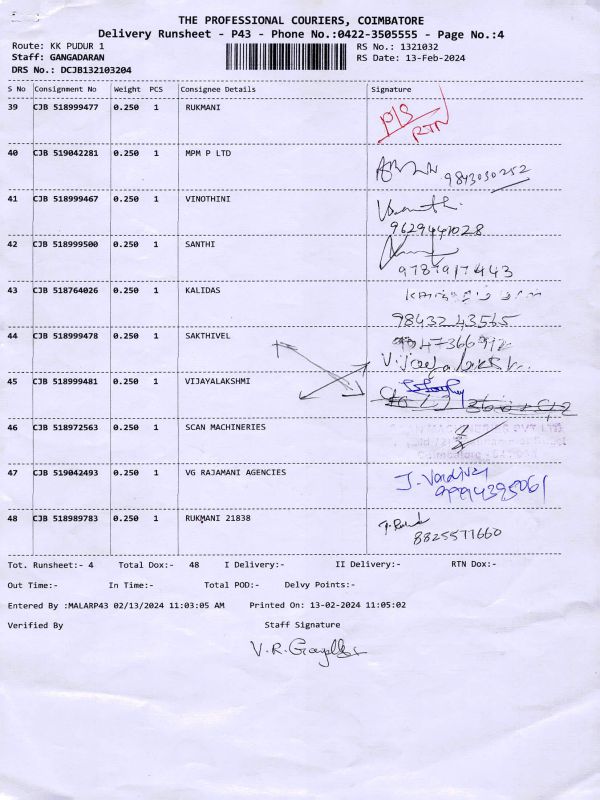 THE PROFESSIONAL COURIERS, COIMBATORE
Delivery Runsheet - P43 - Phone No.:0422-3505555 - Page No.:4
Route: KK PUDUR 1 RS No.: 1321032
Staff: GANGADARAN RS Date: 13-Feb-2024
DRS No.: DCJB132103204
S No Consignment No Weight PCS Consignee Details Signature
39 CJB 518999477 0.250 1 RUKMANI
P/S
RTN
40 CJB 519042281 0.250 1 MPM P LTD
9843030252
41 CJB 518999467 0.250 1 VINOTHINI
9629441028
42 CJB 518999500 0.250 1 SANTHI
9787917443
43 CJB 518764026 0.250 1 KALIDAS
9843243565
44 CJB 518999478 0.250 1 SAKTHIVEL
Vijayalakshmi
45 CJB 518999481 0.250 1 VIJAYALAKSHMI
46 CJB 518972563 0.250 1 SCAN MACHINERIES
47 CJB 519042493 0.250 1 VG RAJAMANI AGENCIES
J. Vardivel
9994395061
48 CJB 518989783 0.250 1 RUKMANI 21838
8825571660
Tot. Runsheet:- 4 Total Dox:- 48 I Delivery:- II Delivery:- RTN Dox:-
Out Time:- In Time:- Total POD:- Delvy Points:-
Entered By :MALARP43 02/13/2024 11:03:05 AM Printed On: 13-02-2024 11:05:02
Verified By Staff Signature
V.R.